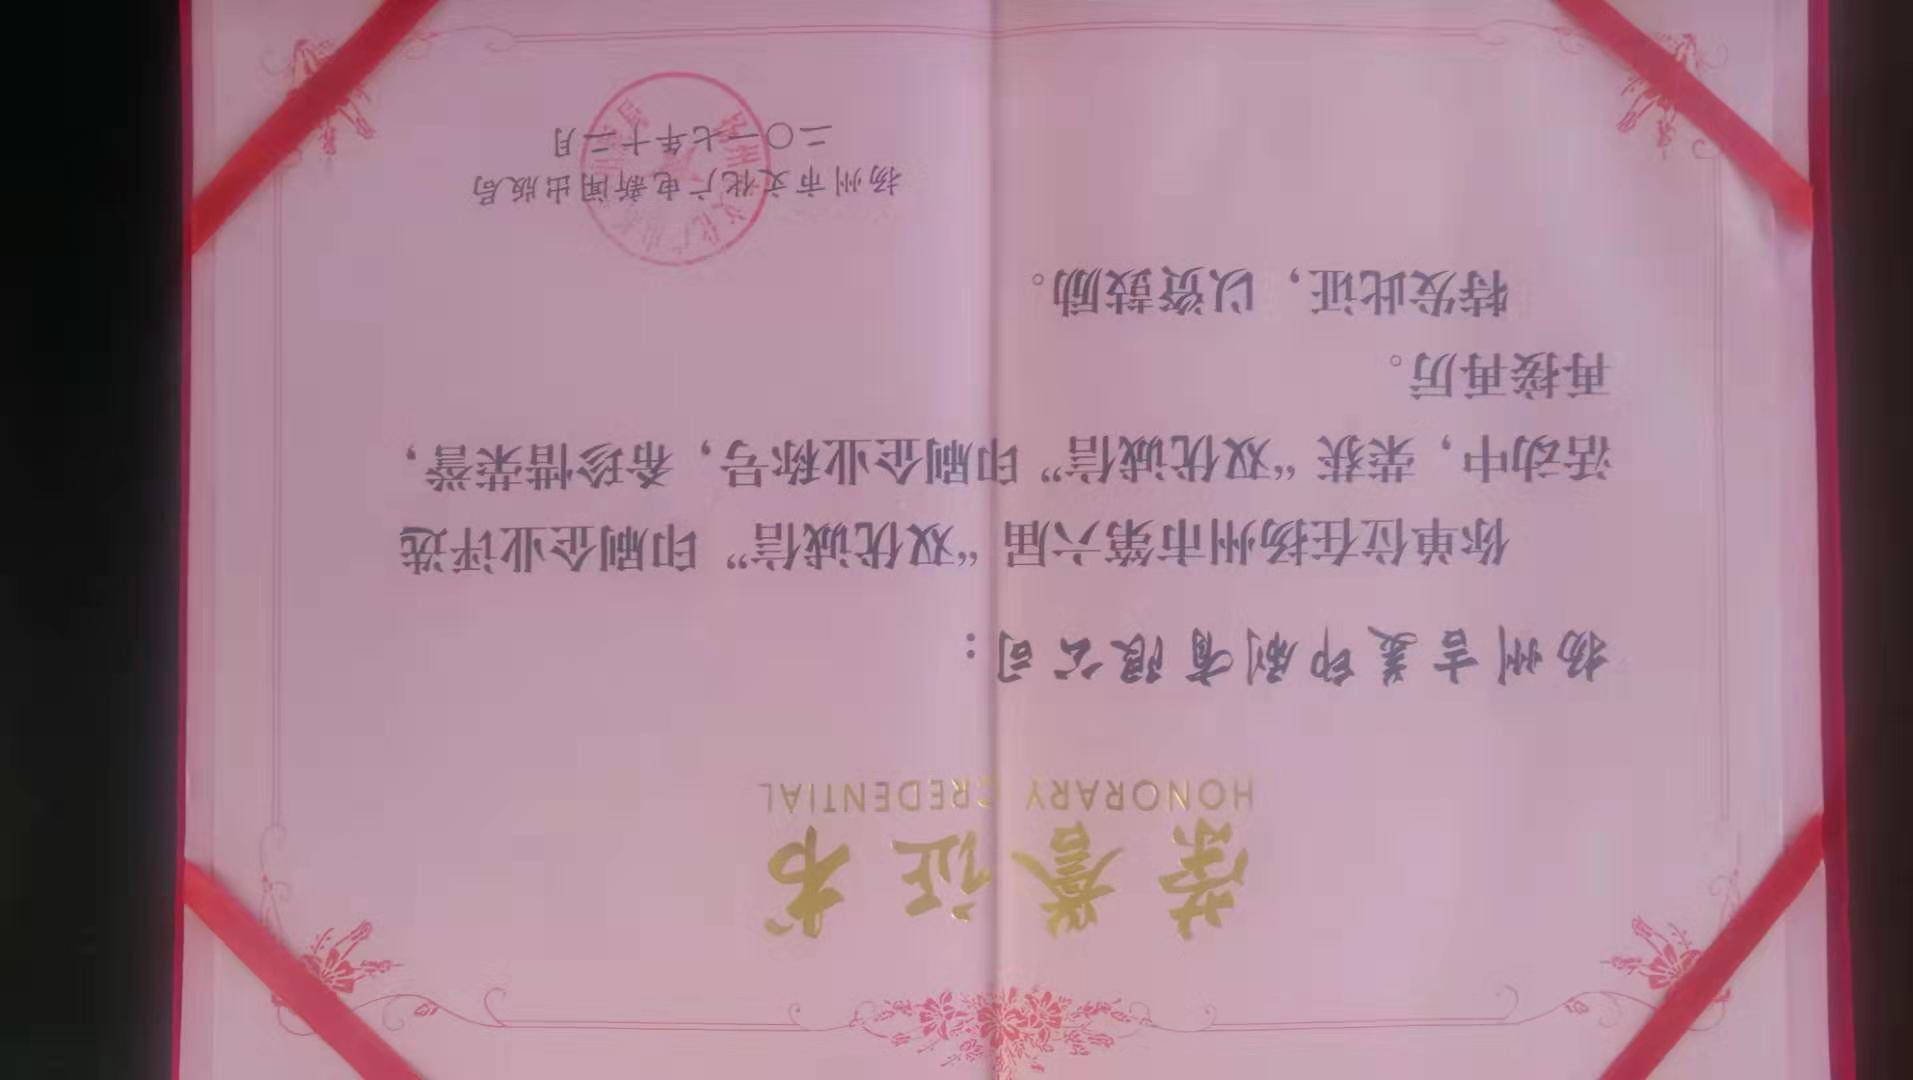 荣誉证书
HONORARY CREDENTIAL
扬州吉美印刷有限公司：
你单位在扬州市第六届“双优诚信”印刷企业评选
活动中，荣获“双优诚信”印刷企业称号，希珍惜荣誉，
再接再厉。
特发此证，以资鼓励。
扬州市文化广电新闻出版局
二〇一七年十二月